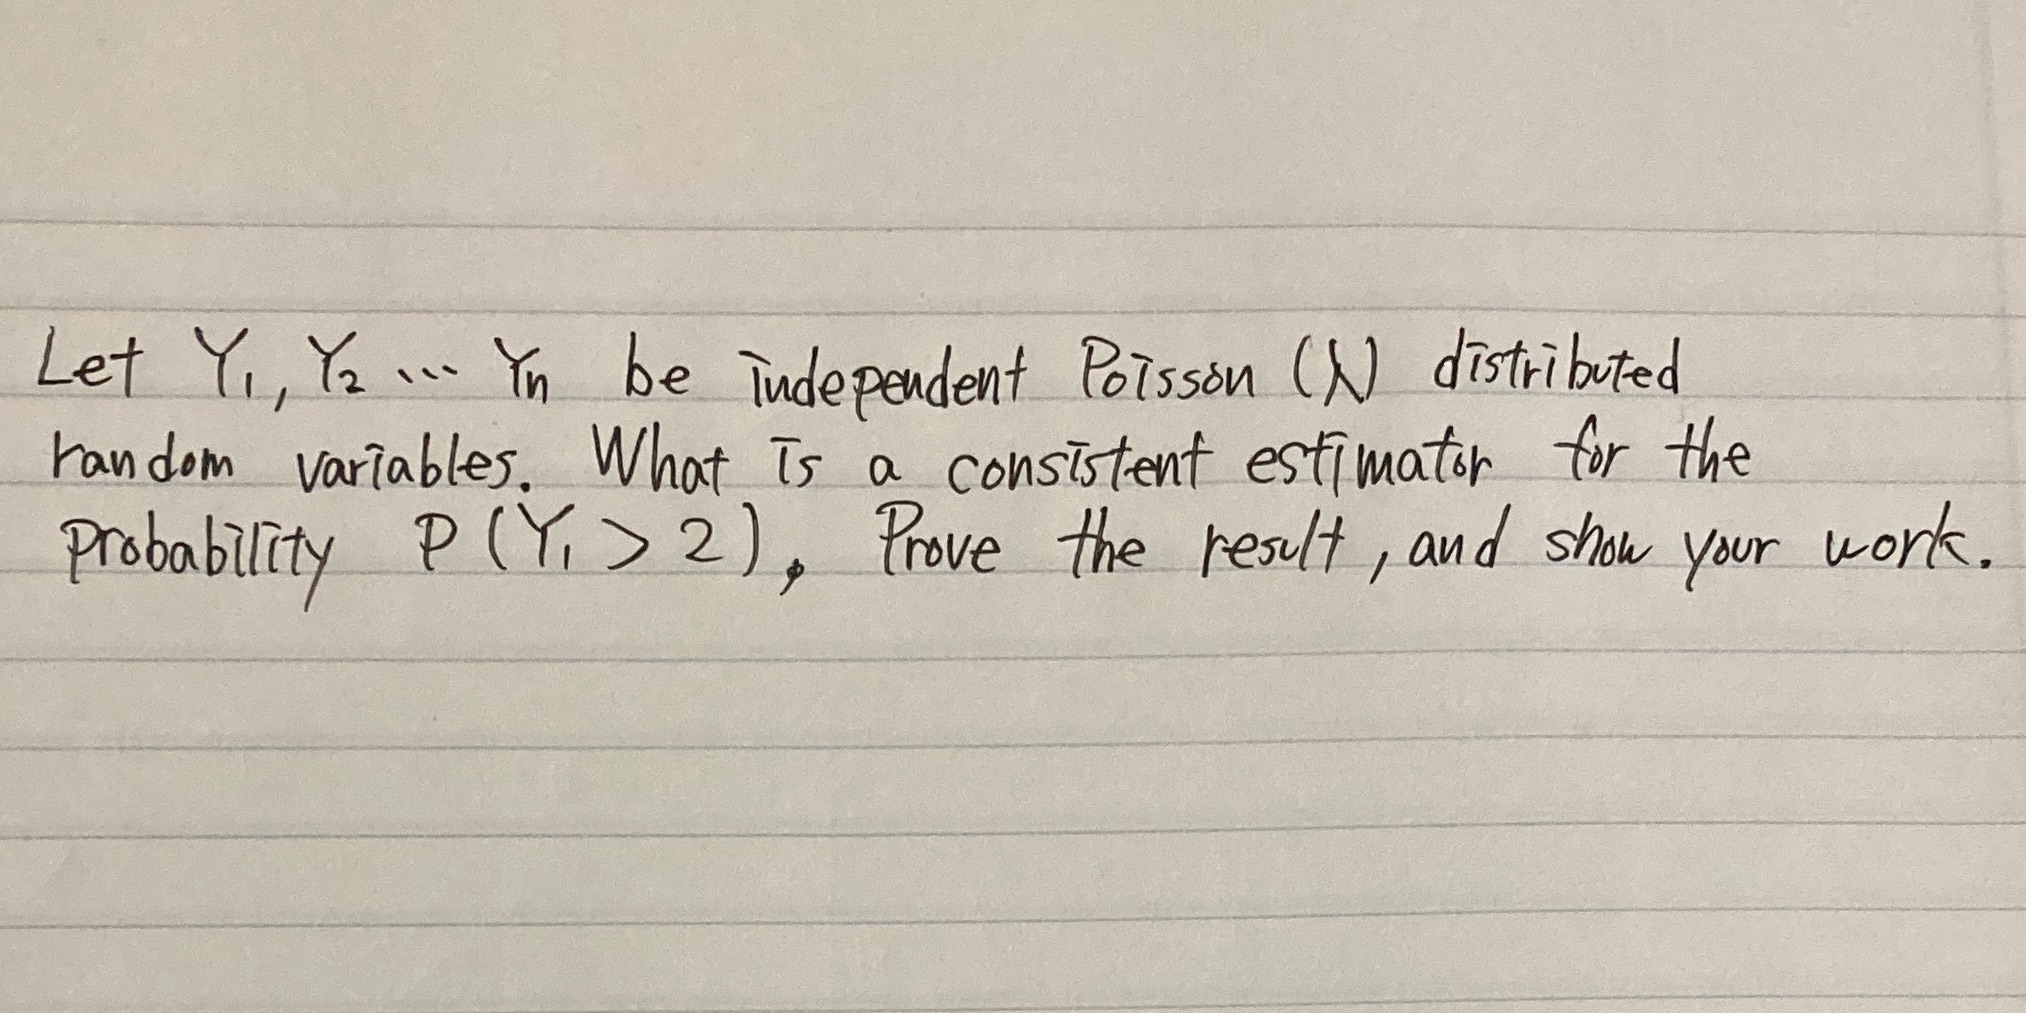 Let Y₁, Y₂ ... Yn be independent Poisson (λ) distributed
random variables. What is a consistent estimator for the
probability P(Y₁ > 2), Prove the result, and show your work.